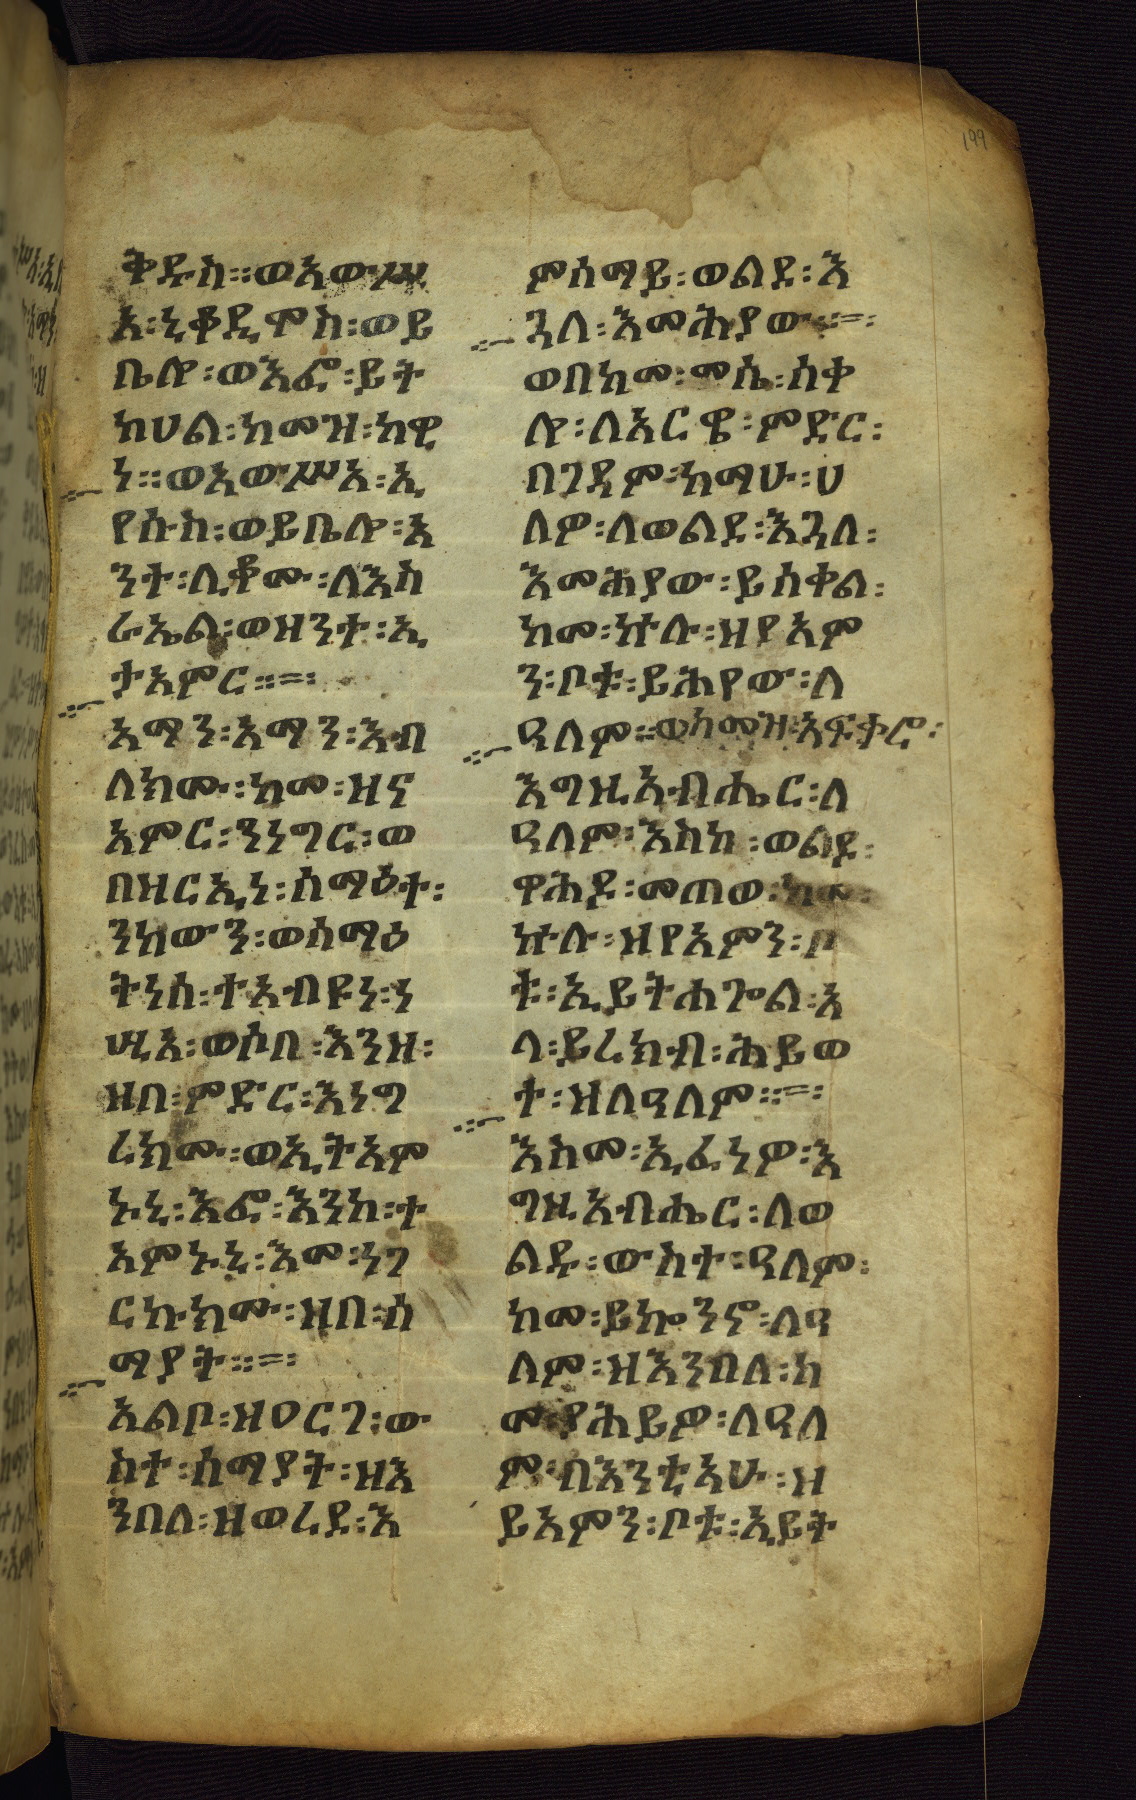 199
ቅዱስ፡፡ወአውሥ
አ፡ኒቆዲሞስ፡ወይ
ቤሎ፡ወእፎ፡ይት
ከሀል፡ከመዝ፡ከዊ
ነ፡፡ወአውሥአ፡ኢ
የሱስ፡ወይቤሎ፡አ
ንተ፡ሊቆሙ፡ለእስ
ራኤል፡ወዘንተ፡ኢ
ታአምር፡፡=፡
አማን፡አማን፡እብ
ለክሙ፡ከመ፡ዘና
አምር፡ንነግር፡ወ
በዝርኢነ፡ሰማዕተ፡
ንከውን፡ወሰማዕ
ትነሰ፡ተአብዩነ፡ነ
ሢአ፡ወሶበ፡እንዘ፡
ዘበ፡ምድር፡እነግ
ረክሙ፡ወኢትአም
ኑኒ፡እፎ፡እንከ፡ተ
አምኑኒ፡እመ፡ነገ
ርኩክሙ፡ዘበ፡ሰ
ማያት፡፡=፡
አልቦ፡ዘዐርገ፡ው
ስተ፡ሰማያት፡ዘእ
ንበለ፡ዘወረደ፡እ
ምሰማይ፡ወልደ፡እ
ጓለ፡እመሕያው፡፡=፡
ወበከመ፡ሙሴ፡ሰቀ
ሎ፡ለአርዌ፡ምድር፡
በገዳም፡ከማሁ፡ሀ
ለዎ፡ለወልደ፡እጓለ፡
እመሕያው፡ይሰቀል፡
ከመ፡ኵሉ፡ዘየአም
ን፡ቦቱ፡ይሕየው፡ለ
ዓለም፡፡ወከመዝ፡አፍቀሮ፡
እግዚአብሔር፡ለ
ዓለም፡እስከ፡ወልደ፡
ዋሕደ፡መጠወ፡ከመ፡
ኵሉ፡ዘየአምን፡ቦ
ቱ፡ኢይትሐጐል፡አ
ላ፡ይረክብ፡ሕይወ
ተ፡ዘለዓለም፡፡=፡
እስመ፡ኢፈነዎ፡እ
ግዚአብሔር፡ለወ
ልዱ፡ውስተ፡ዓለም፡
ከመ፡ይኰንኖ፡ለዓ
ለም፡ዘእንበለ፡ከ
መ፡ያሕይዎ፡ለዓለ
ም፡በእንቲአሁ፡ዘ
ይአምን፡ቦቱ፡ኢይት